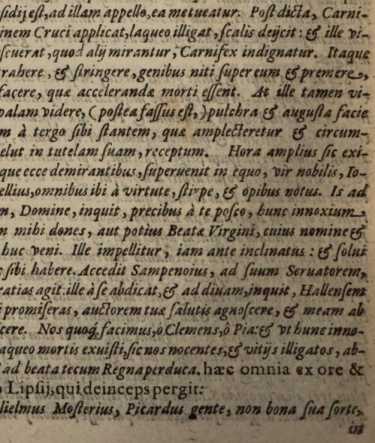 sidij est, ad illam appello, ea metueatur. Post dicta, Carni-
inem Cruci applicat, laqueo illigat, scalis deijcit: & ille vi-
scuerat, quod alij mirantur, Carnifex indignatur. Itaque
rahere, & stringere, genibus niti super eum & premere,
facere, quæ accelerandæ morti essent. At ille tamen vi-
palam videre, (postea fassus est,) pulchra & augusta facie
m à tergo sibi stantem, quæ amplecteretur & circum-
elut in tutelam suam, receptum. Hora amplius sic exi-
que ecce demirantibus, superuenit in equo, vir nobilis, Io-
ellius, omnibus ibi à virtute, stirpe, & opibus notus. Is ad
n, Domine, inquit, precibus à te posco, hunc innoxium
n mihi dones, aut potius Beatæ Virgini, cuius nomine &
huc veni. Ille impellitur, iam ante inclinatus: & solui
e sibi habere. Accedit Sampenoius, ad suum Seruatorem,
ratias agit. ille à se abdicat, & ad diuam, inquit, Hallensem
i promiseras, auctorem tuæ salutis agnoscere, & meam ab
cere. Nos quoq, facimus, ô Clemens, ô Pia: & vt hunc inno-
aqueo mortis exuisti, sic nos nocentes, & vitijs illigatos, ab-
ad beata tecum Regna perduca. hæc omnia ex ore &
o Lipsij, qui deinceps pergit:
lielmus Mosterius, Picardus gente, non bona sua sorte,